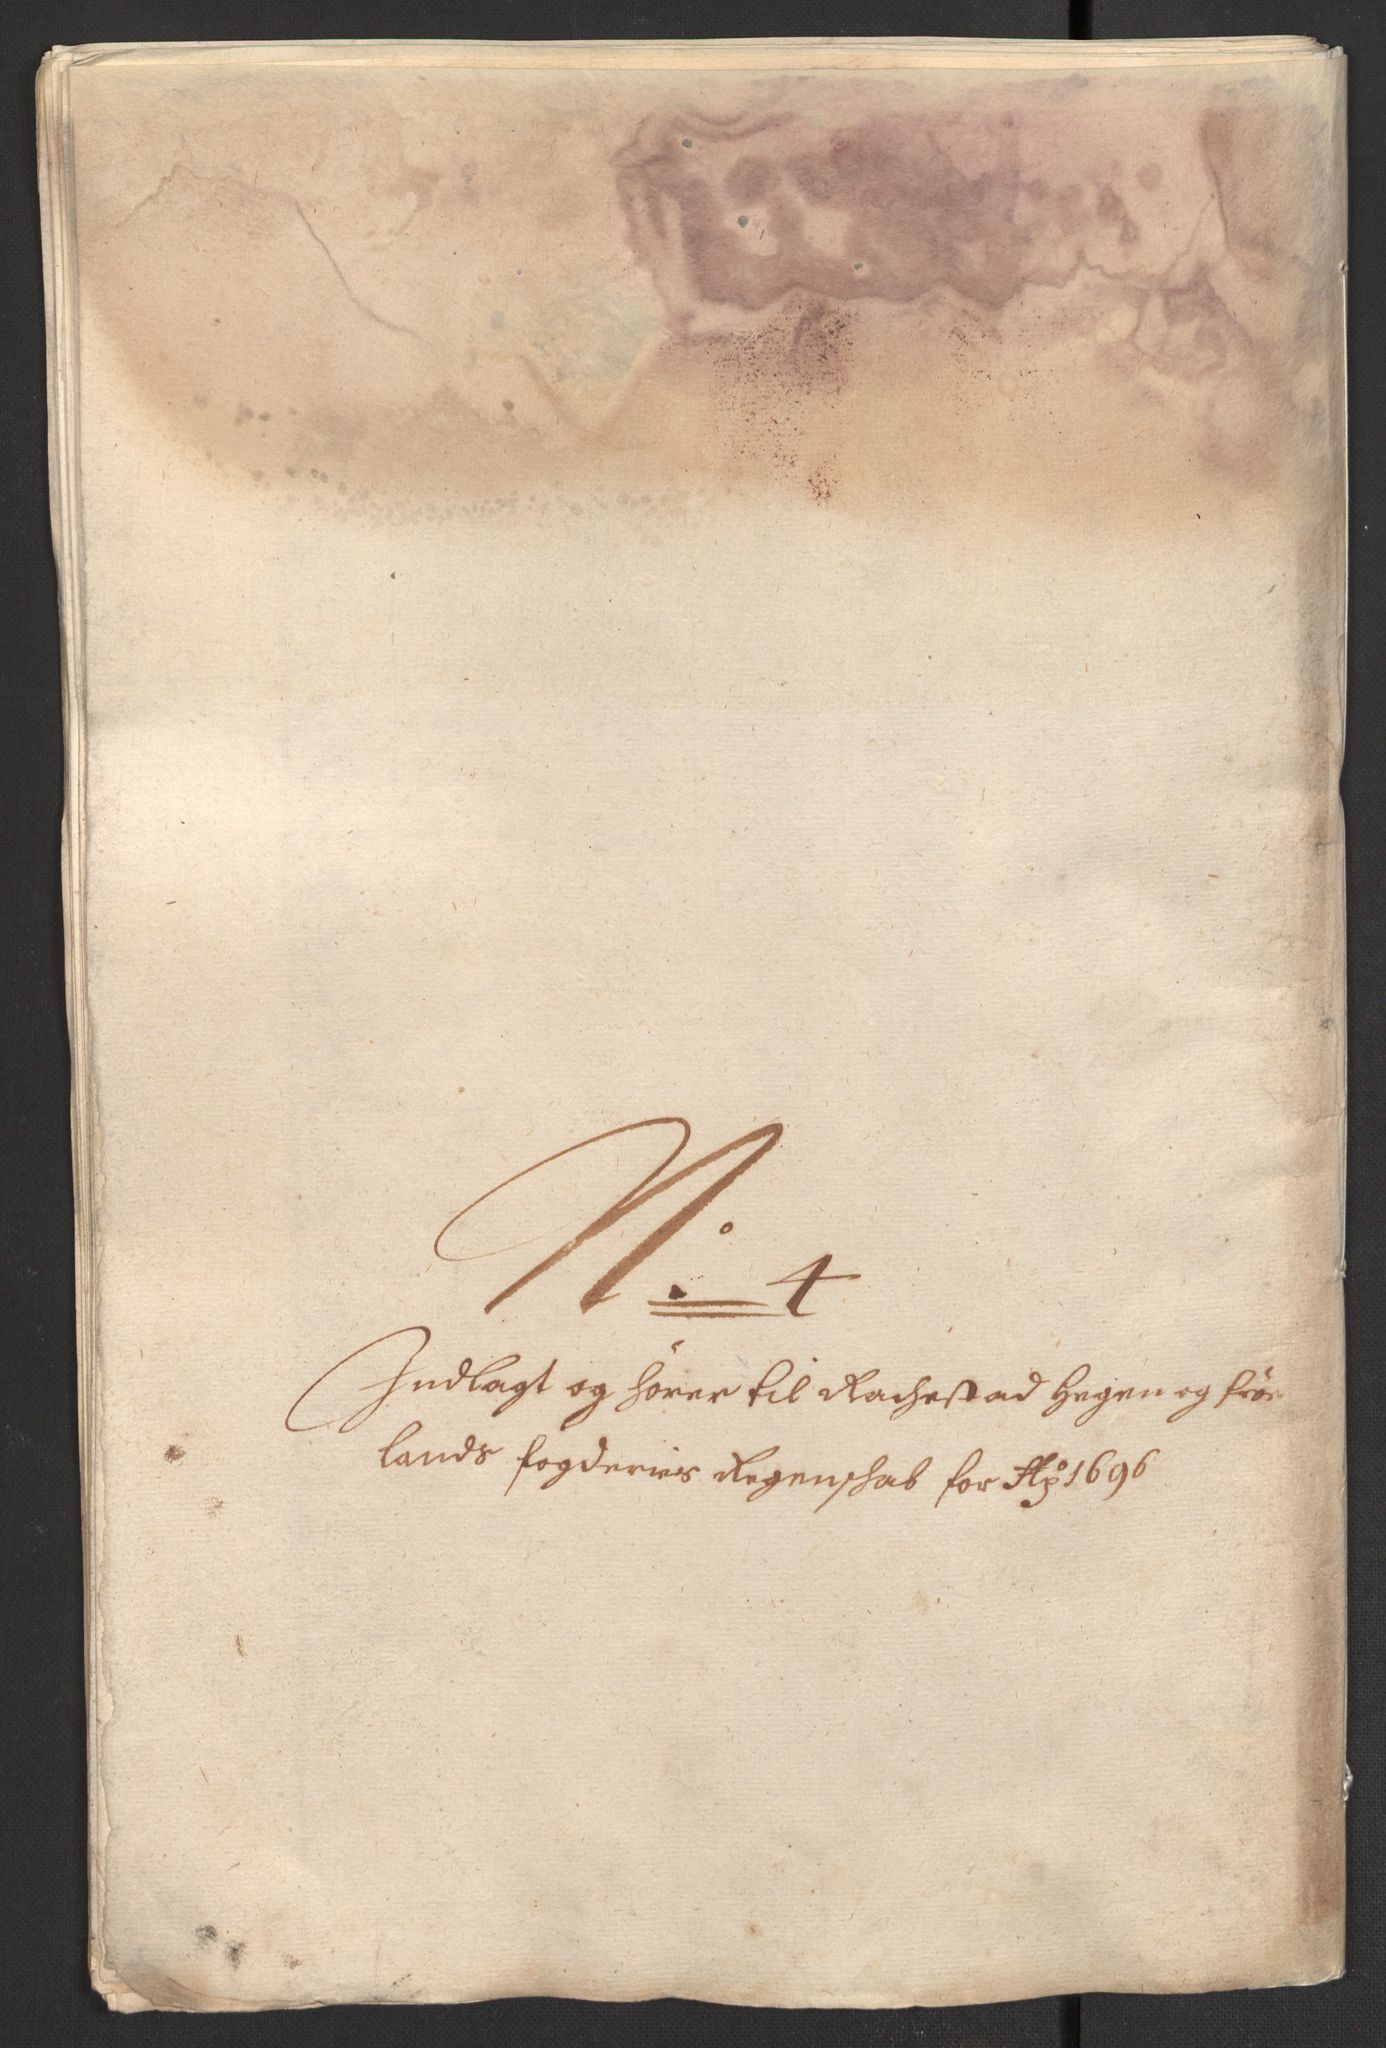 No. 4
Indlagt og hører til Rachestad Heggen og frö
lands fogderies Regenschab for Ao 1696